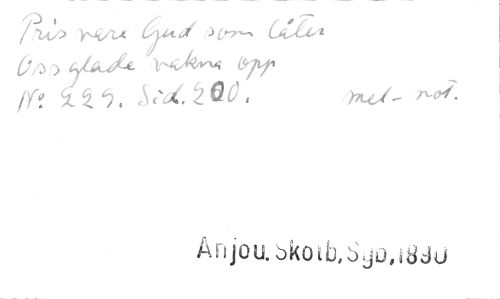 Pris vare Gud som låter
Oss glada vakna opp
No 229. Sid. 200. mel-not.
Anjou. Skolb, Sgb, 1890